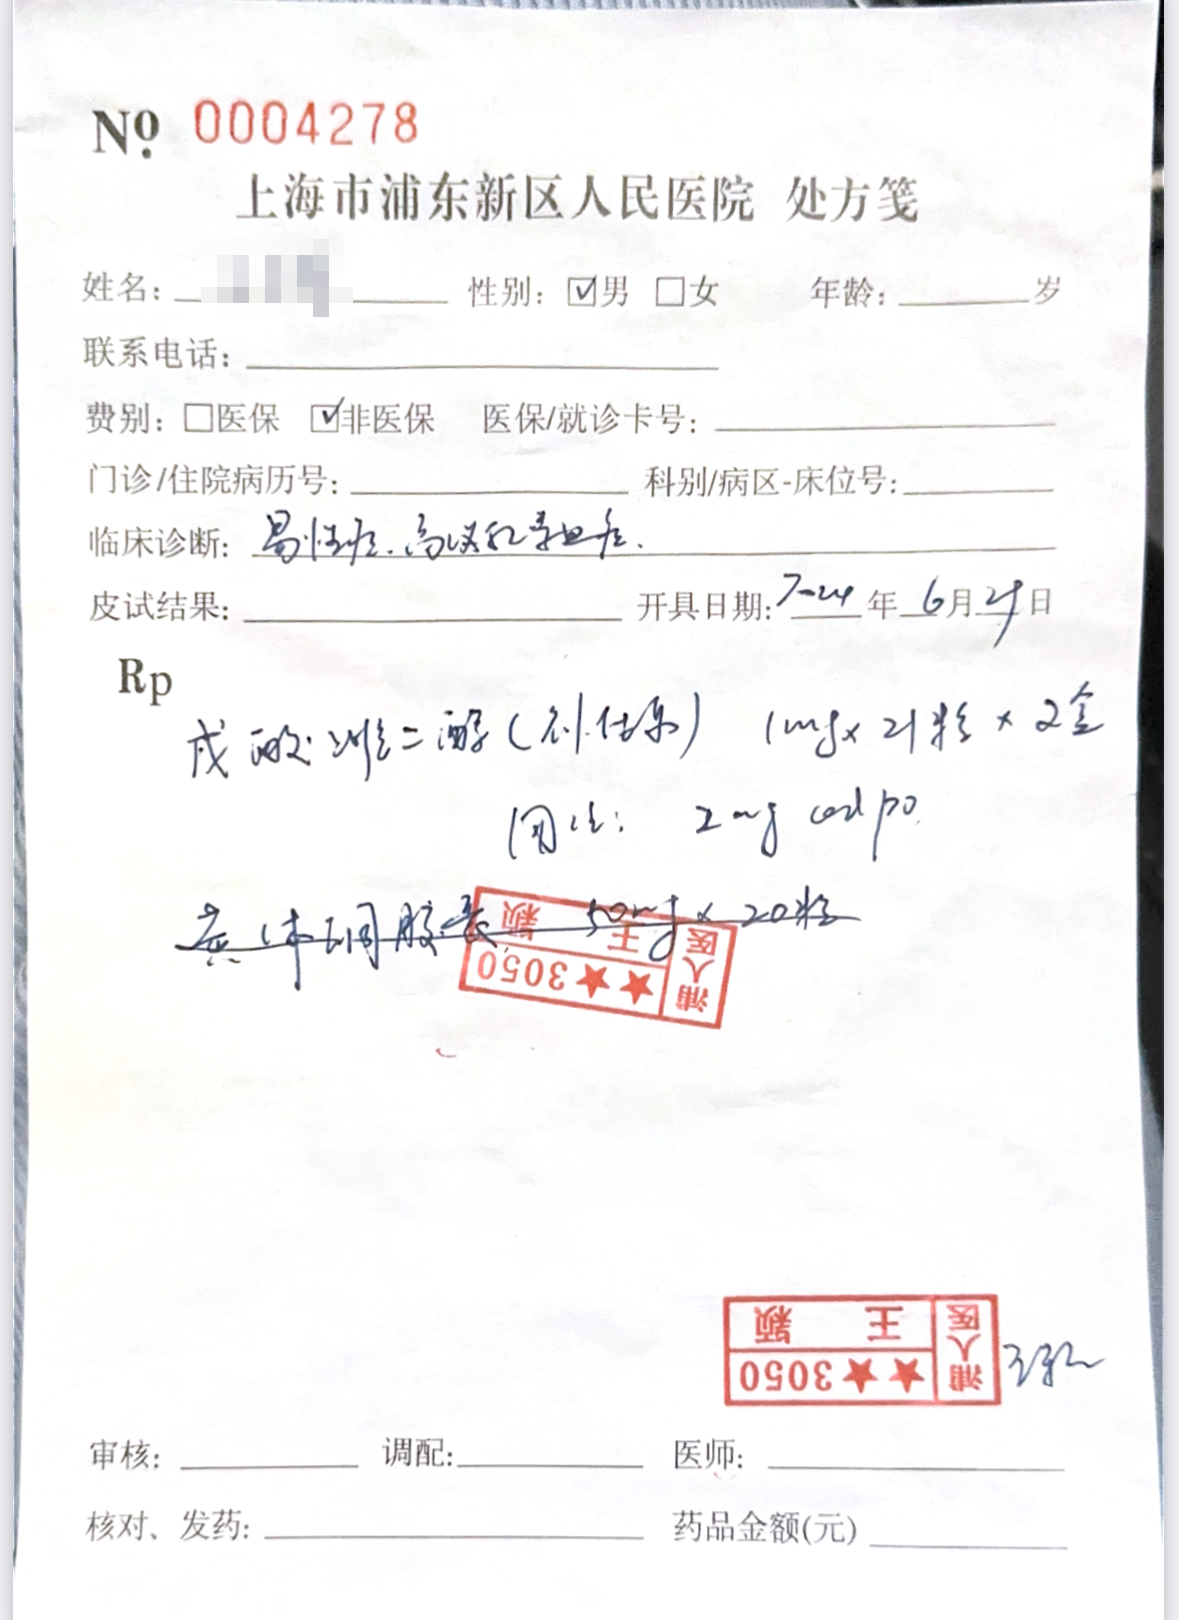 No. 0004278
上海市浦东新区人民医院 处方笺
姓名: 性别: ☑男 □女 年龄: 岁
联系电话:
费别: □医保 ☑非医保 医保/就诊卡号:
门诊/住院病历号: 科别/病区-床位号:
临床诊断: 易性症.高泌乳素血症.
皮试结果: 开具日期: 年 6月 日
Rp
戊酸雌二醇( ) 1mg×21粒×2盒
用法: 2mg po
黄体酮胶囊 50mg×20粒
浦人医 王颖 ★★3050
浦人医 王颖 ★★3050
审核: 调配: 医师:
核对、发药: 药品金额(元)